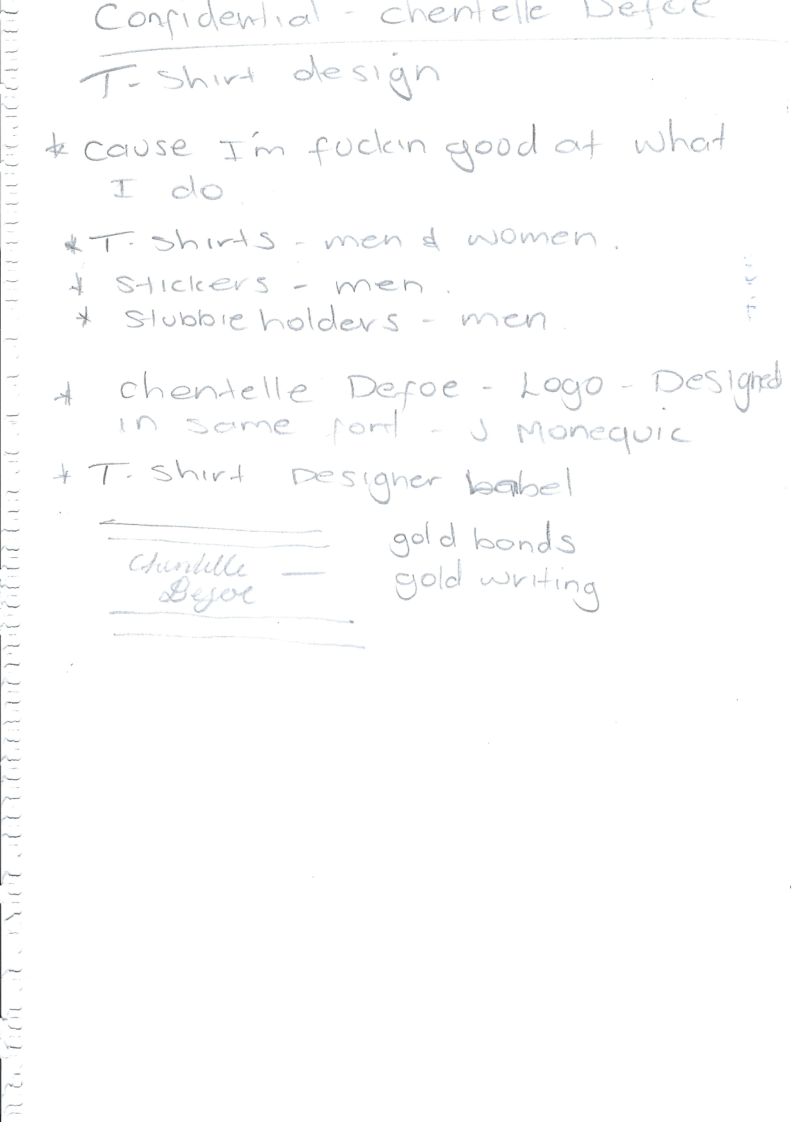 Confidential - Chentelle Defoe
T-Shirt design
* cause I'm fuckin good at what
I do
* T-Shirts - men & women.
* Stickers - men.
* Stubbie holders - men
* Chentelle Defoe - Logo - Designed
in same font - J Monequic
* T-Shirt Designer babel
gold bonds
Chentelle — gold writing
Defoe